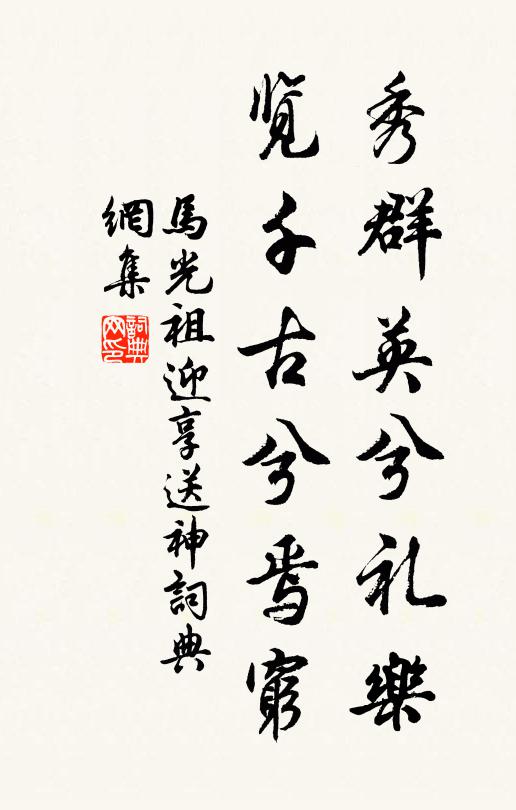 秀群英兮礼樂
览千古兮焉窮
馬光祖迎享送神詞典
網集
詞典
网印